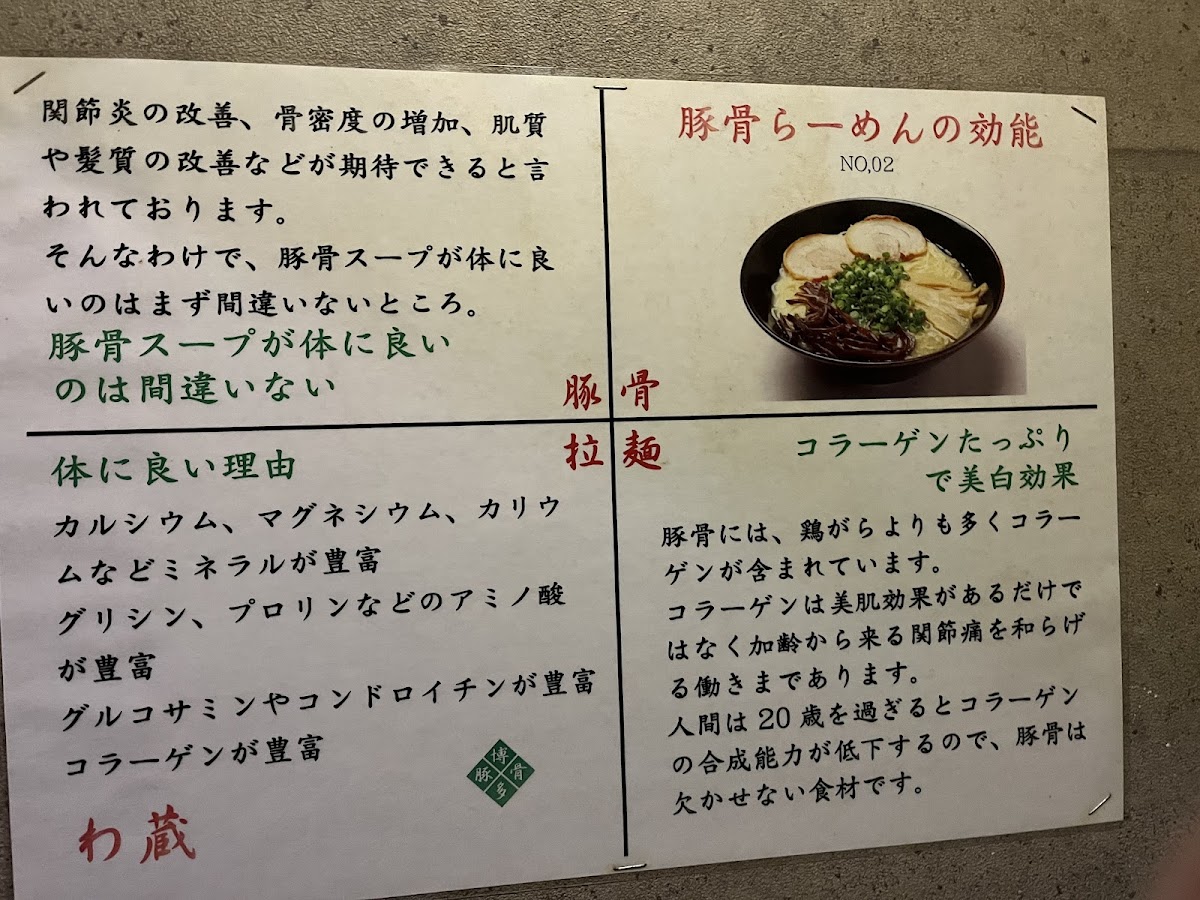 豚骨らーめんの効能
NO,02
関節炎の改善、骨密度の増加、肌質
や髪質の改善などが期待できると言
われております。
そんなわけで、豚骨スープが体に良
いのはまず間違いないところ。
豚骨スープが体に良い
のは間違いない
豚骨
拉麺
コラーゲンたっぷり
で美白効果
豚骨には、鶏がらよりも多くコラー
ゲンが含まれています。
コラーゲンは美肌効果があるだけで
はなく加齢から来る関節痛を和らげ
る働きまであります。
人間は20歳を過ぎるとコラーゲン
の合成能力が低下するので、豚骨は
欠かせない食材です。
体に良い理由
カルシウム、マグネシウム、カリウ
ムなどミネラルが豊富
グリシン、プロリンなどのアミノ酸
が豊富
グルコサミンやコンドロイチンが豊富
コラーゲンが豊富
博
豚骨
多
わ蔵